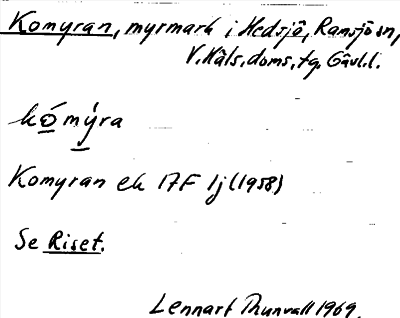 Komyran, myrmark i Hedsjö, Ramsjö sn,
V. Häls. doms. tg. Gävl. l.
kómýra
Komyran ek 17F 1j (1958)
Se Riset.
Lennart Thunvall 1969.